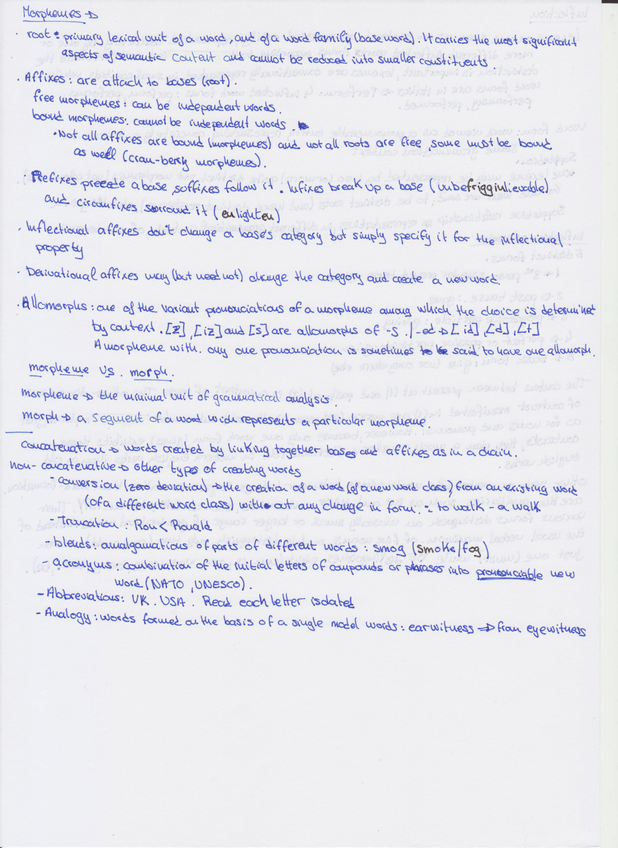 Morphemes →
· root: primary lexical unit of a word, and of a word family (base word). It carries the most significant
aspects of semantic content and cannot be reduced into smaller constituents.
· Affixes: are attach to bases (root).
free morphemes: can be independent words.
bound morphemes: cannot be independent words.
• Not all affixes are bound (morphemes) and not all roots are free, some must be bound
as well (cran-berry morphemes).
· Prefixes precede a base, suffixes follow it. Infixes break up a base (unbefrigginlievable)
and circumfixes surround it (enlighten)
· Inflectional affixes don't change a base's category but simply specify it for the inflectional
property
· Derivational affixes may (but need not) change the category and create a new word.
· Allomorphs: one of the variant pronounciations of a morpheme among which the choice is determined
by context. [z], [iz] and [s] are allomorphs of -s. / -ed → [id], [d], [t]
A morpheme with only one pronounciation is sometimes said to have one allomorph.
morpheme vs. morph.
morpheme → the minimal unit of grammatical analysis.
morph → a segment of a word wich represents a particular morpheme.
concatenation → words created by linking together bases and affixes as in a chain.
non-concatenative → other types of creating words
- conversion (zero deviation) → the creation of a word (of a new word class) from an existing word
(of a different word class) without any change in form. : to walk - a walk
- Truncation: Ron < Ronald
- blends: amalgamations of parts of different words: smog (smoke/fog)
- acronyms: combination of the initial letters of compounds or phrases into pronounceable new
word. (NATO, UNESCO).
- Abbreviations: UK. USA. Read each letter isolated
- Analogy: words formed on the basis of a single model words: earwitness ⇒ from eyewitness